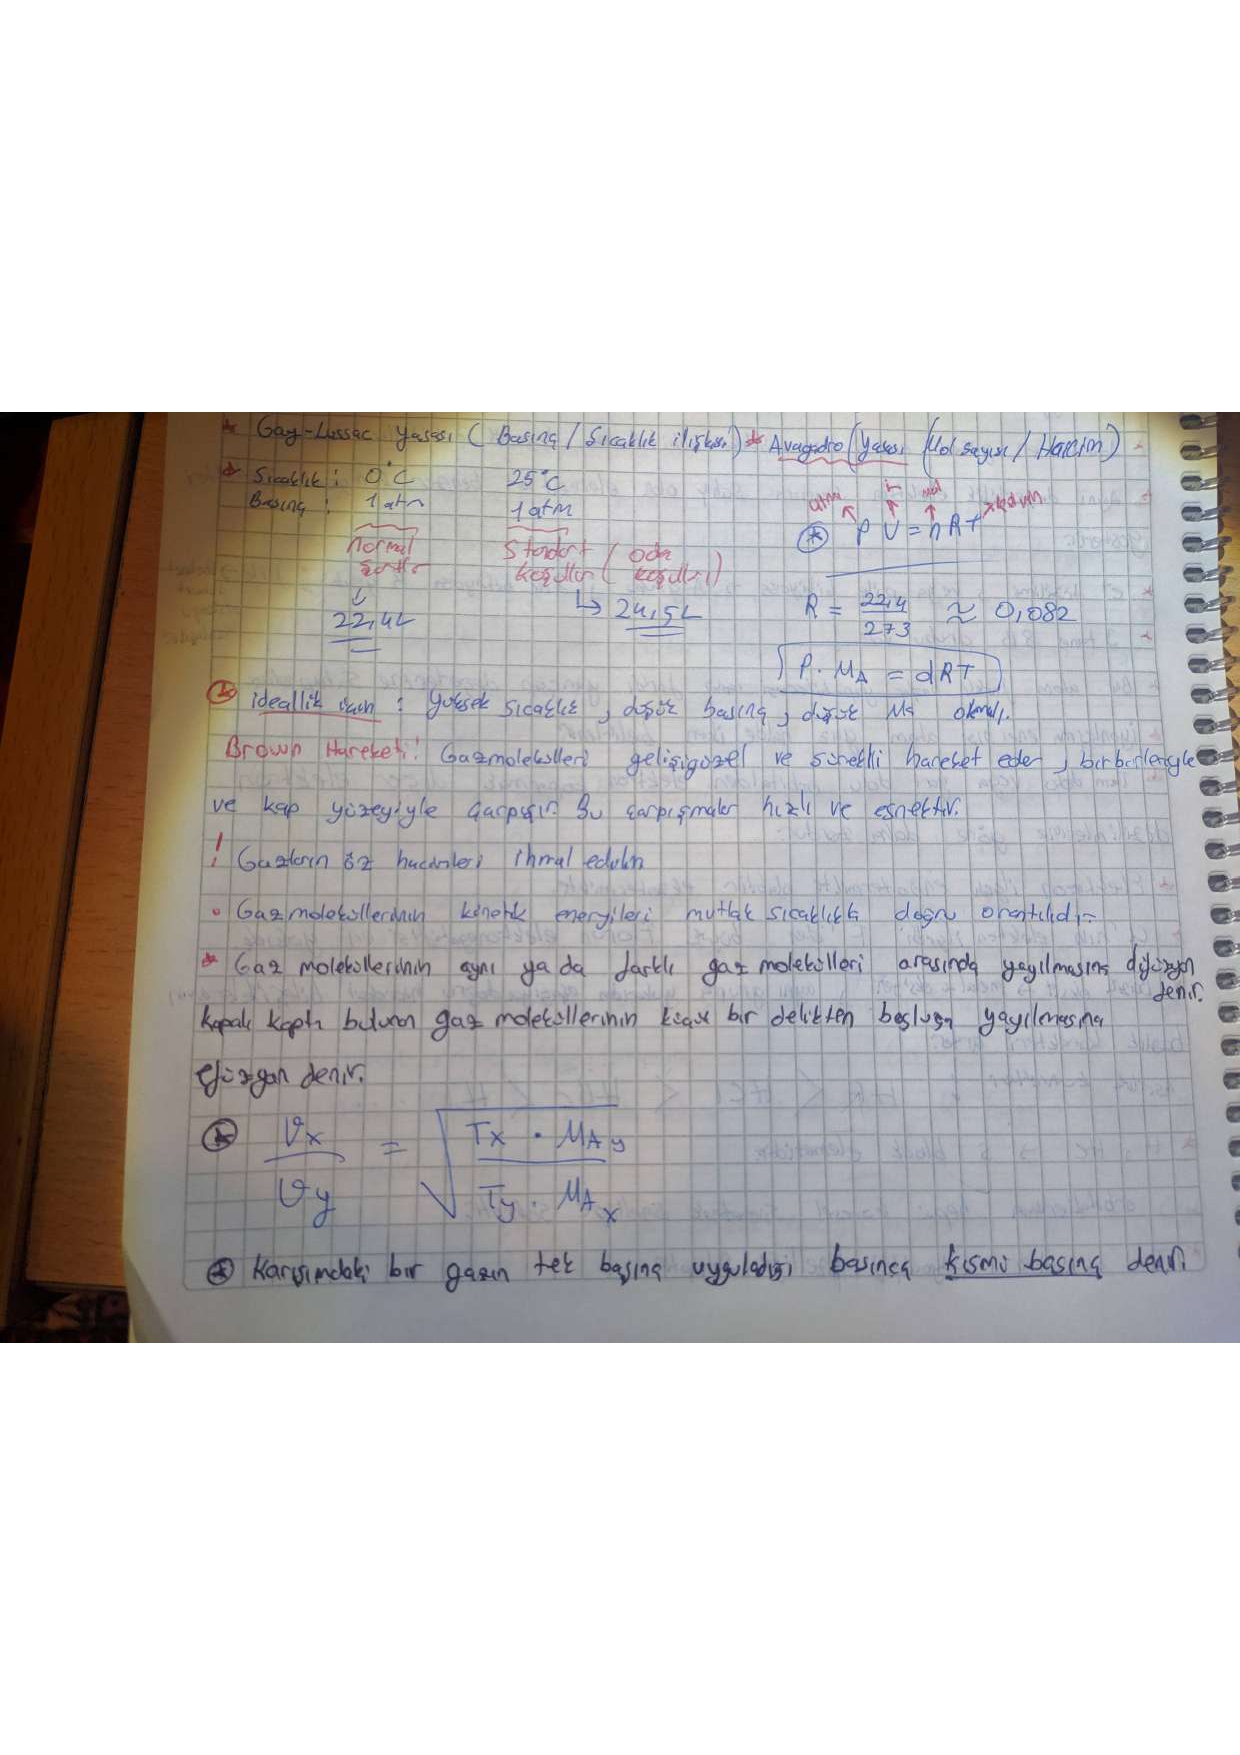 * Gay-Lussac yasası ( Basınç / Sıcaklık ilişkisi ) * Avagadro Yasası ( Mol sayısı / Hacim )
* Sıcaklık : 0°C 25°C
Basınç : 1 atm 1 atm
atm L mol kelvin
* PV = nRT
normal şartlar Standart koşullar ( oda koşulları )
↓ 22,4L ↳ 24,5L
R = 22,4 / 273 ≈ 0,082
P. MA = dRT
* ideallik için : Yüksek sıcaklık , düşük basınç , düşük Ma olmalı.
Brown Hareketi! Gaz molekülleri gelişigüzel ve sürekli hareket eder , birbirleriyle
ve kap yüzeyiyle çarpışır. Bu çarpışmalar hızlı ve esnektir.
! Gazların öz hacimleri ihmal edilir
• Gaz moleküllerinin kinetik enerjileri mutlak sıcaklıkla doğru orantılıdır
* Gaz moleküllerinin aynı ya da farklı gaz molekülleri arasında yayılmasına difüzyon denir.
Kapalı kapta bulunan gaz moleküllerinin küçük bir delikten boşluğa yayılmasına
efüzyon denir.
* ϑx / ϑy = √ Tx · MAy / Ty · MAx
* Karışımdaki bir gazın tek başına uyguladığı basınca kısmi basınç denir.